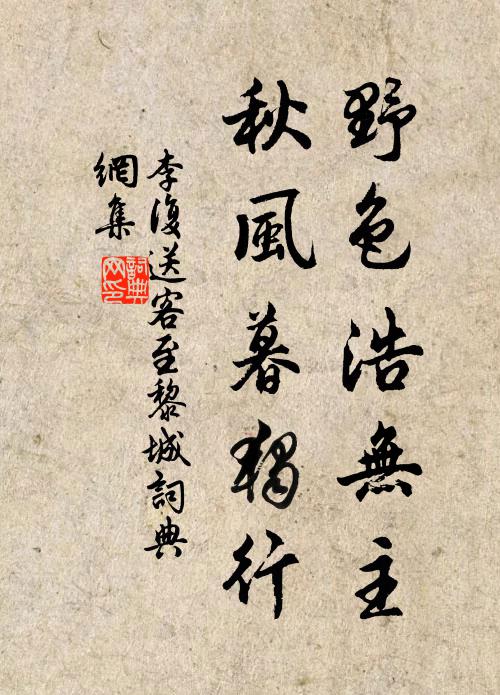 野色浩無主
秋風暮獨行
李復送客至黎城詞典
網集
詞典
网印